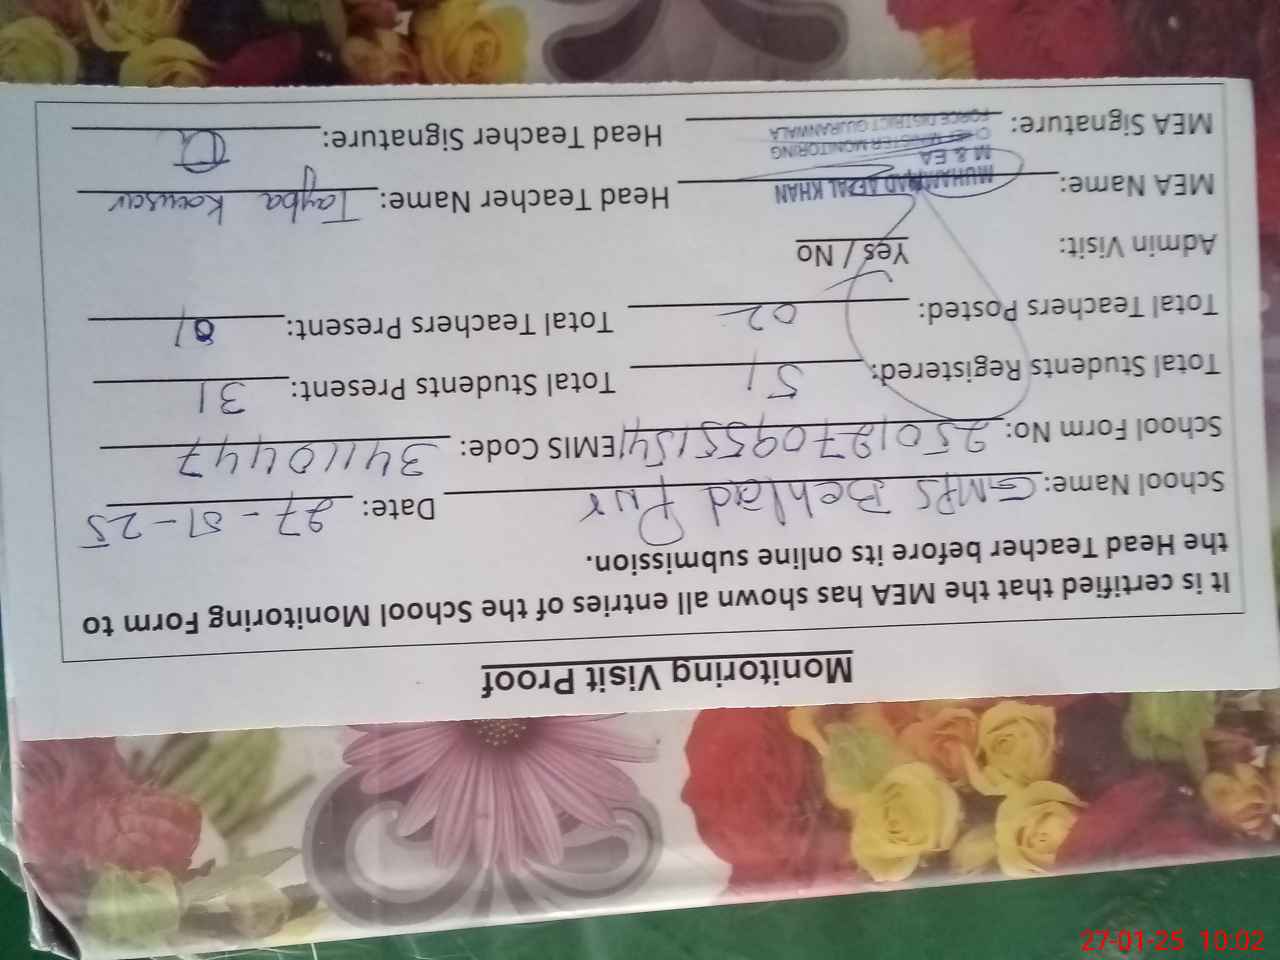 Monitoring Visit Proof
It is certified that the MEA has shown all entries of the School Monitoring Form to
the Head Teacher before its online submission.
School Name: GMPS Behlad Pur Date: 27-01-25
School Form No: EMIS Code: 34110447
Total Students Registered: 51 Total Students Present: 31
Total Teachers Posted: 02 Total Teachers Present: 01
Admin Visit: Yes / No
MEA Name: MUHAMMAD AFZAL KHAN Head Teacher Name: Tayba Kousar
M & EA
CHIEF MINISTER MONITORING
FORCE DISTRICT GUJRANWALA
MEA Signature: Head Teacher Signature:
27-01-25 10:02